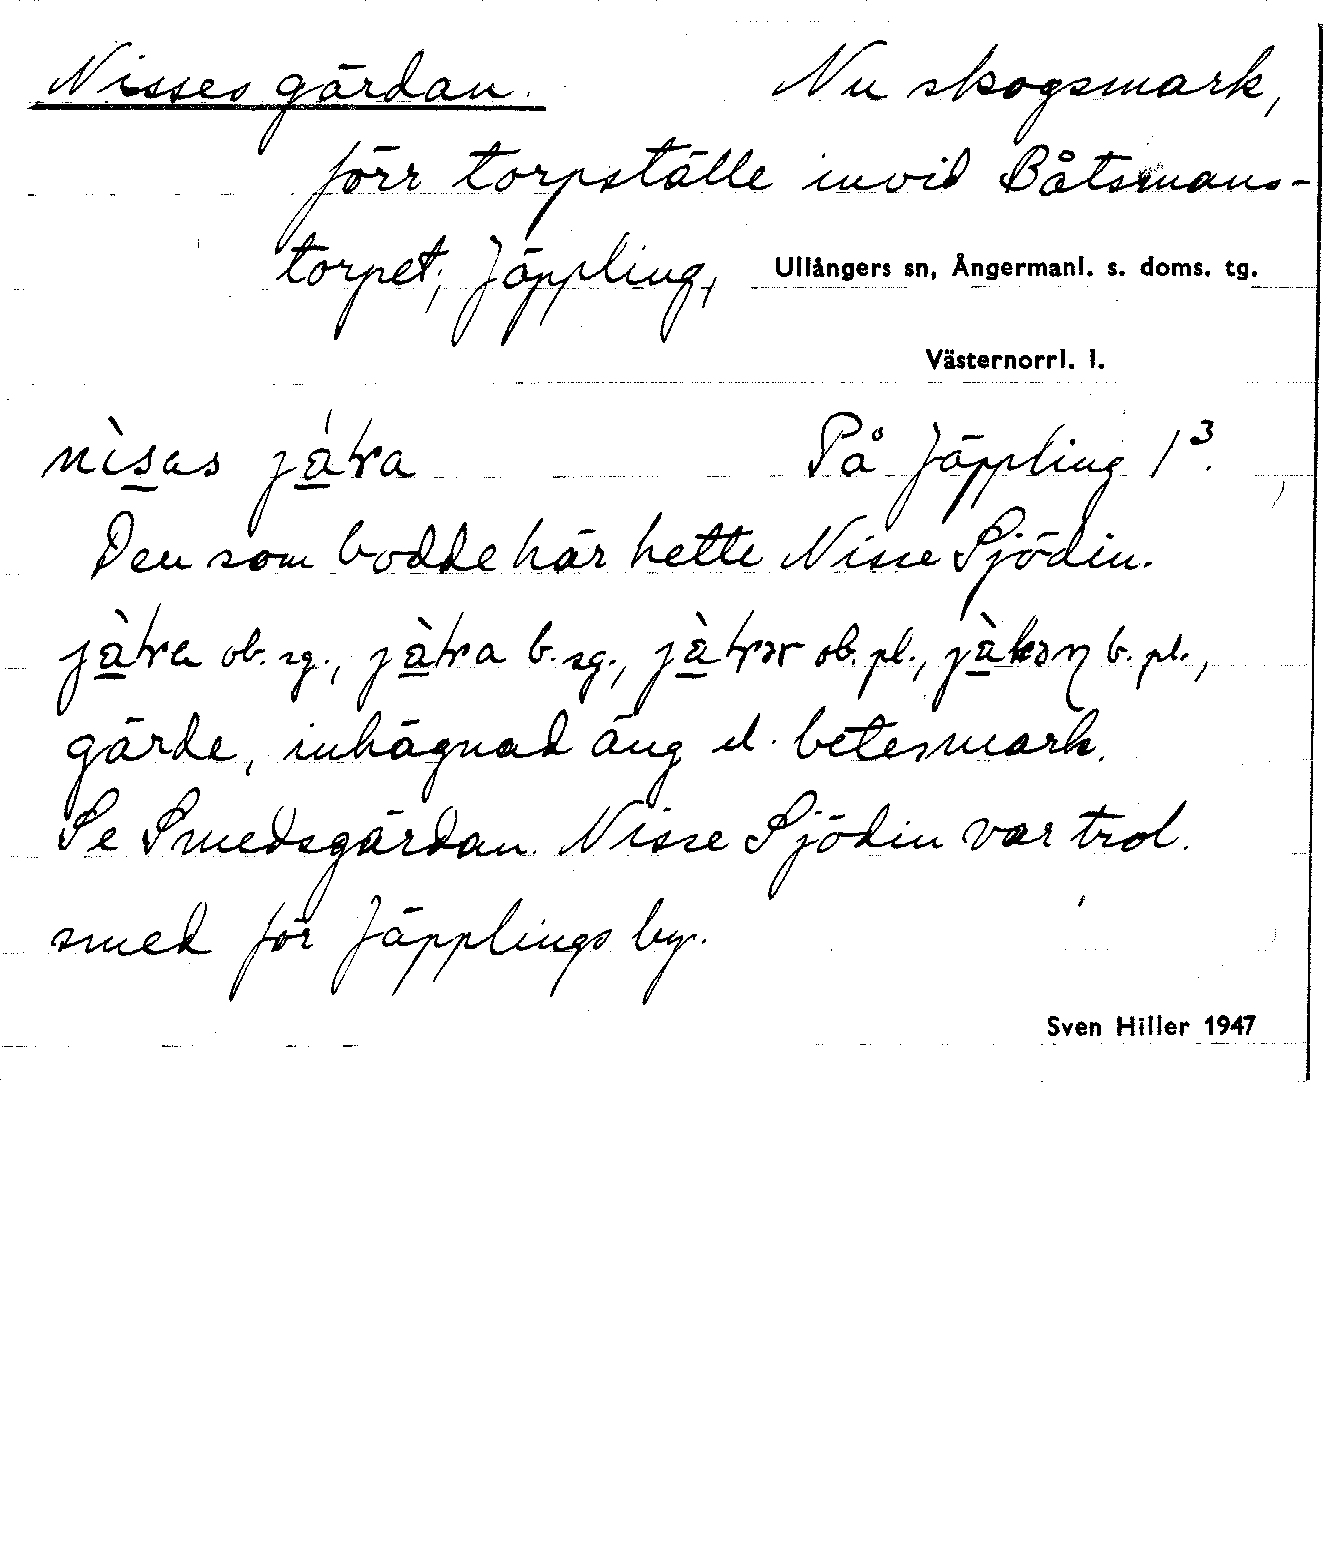 Nisses gärdan. Nu skogsmark,
förr torpställe invid Båtsmans-
torpet, Jäppling, Ullångers sn, Ångermanl. s. doms. tg.
Västernorrl. l.
På Jäppling 1³.
Den som bodde här hette Nisse Sjödin.
ob. sg., b. sg., ob. pl., b. pl.,
gärde, inhägnad äng el. betesmark.
Se Smedsgärdan. Nisse Sjödin var trol.
smed för Jäpplings by.
Sven Hiller 1947